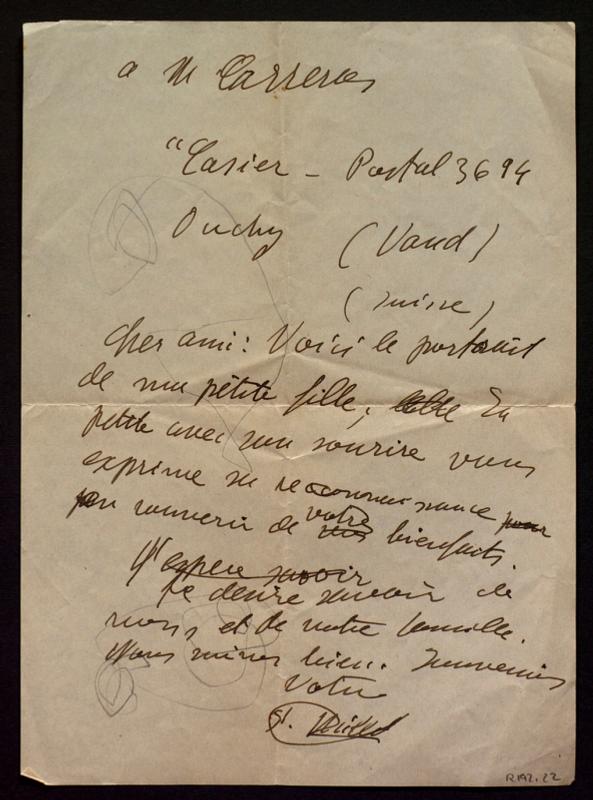 a M Carreras
"Casier - Postal 3694
Ouchy (Vaud)
(Suisse)
Cher ami: Voici le portrait
de ma petite fille; La
petite avec son sourire vous
exprime sa reconnaissance pour
en souvenir de votre bienfaits.
J'espere savoir
Je desire savoir de
vous et de votre famille.
Nous bien. Souvenirs
Votre
R192.22